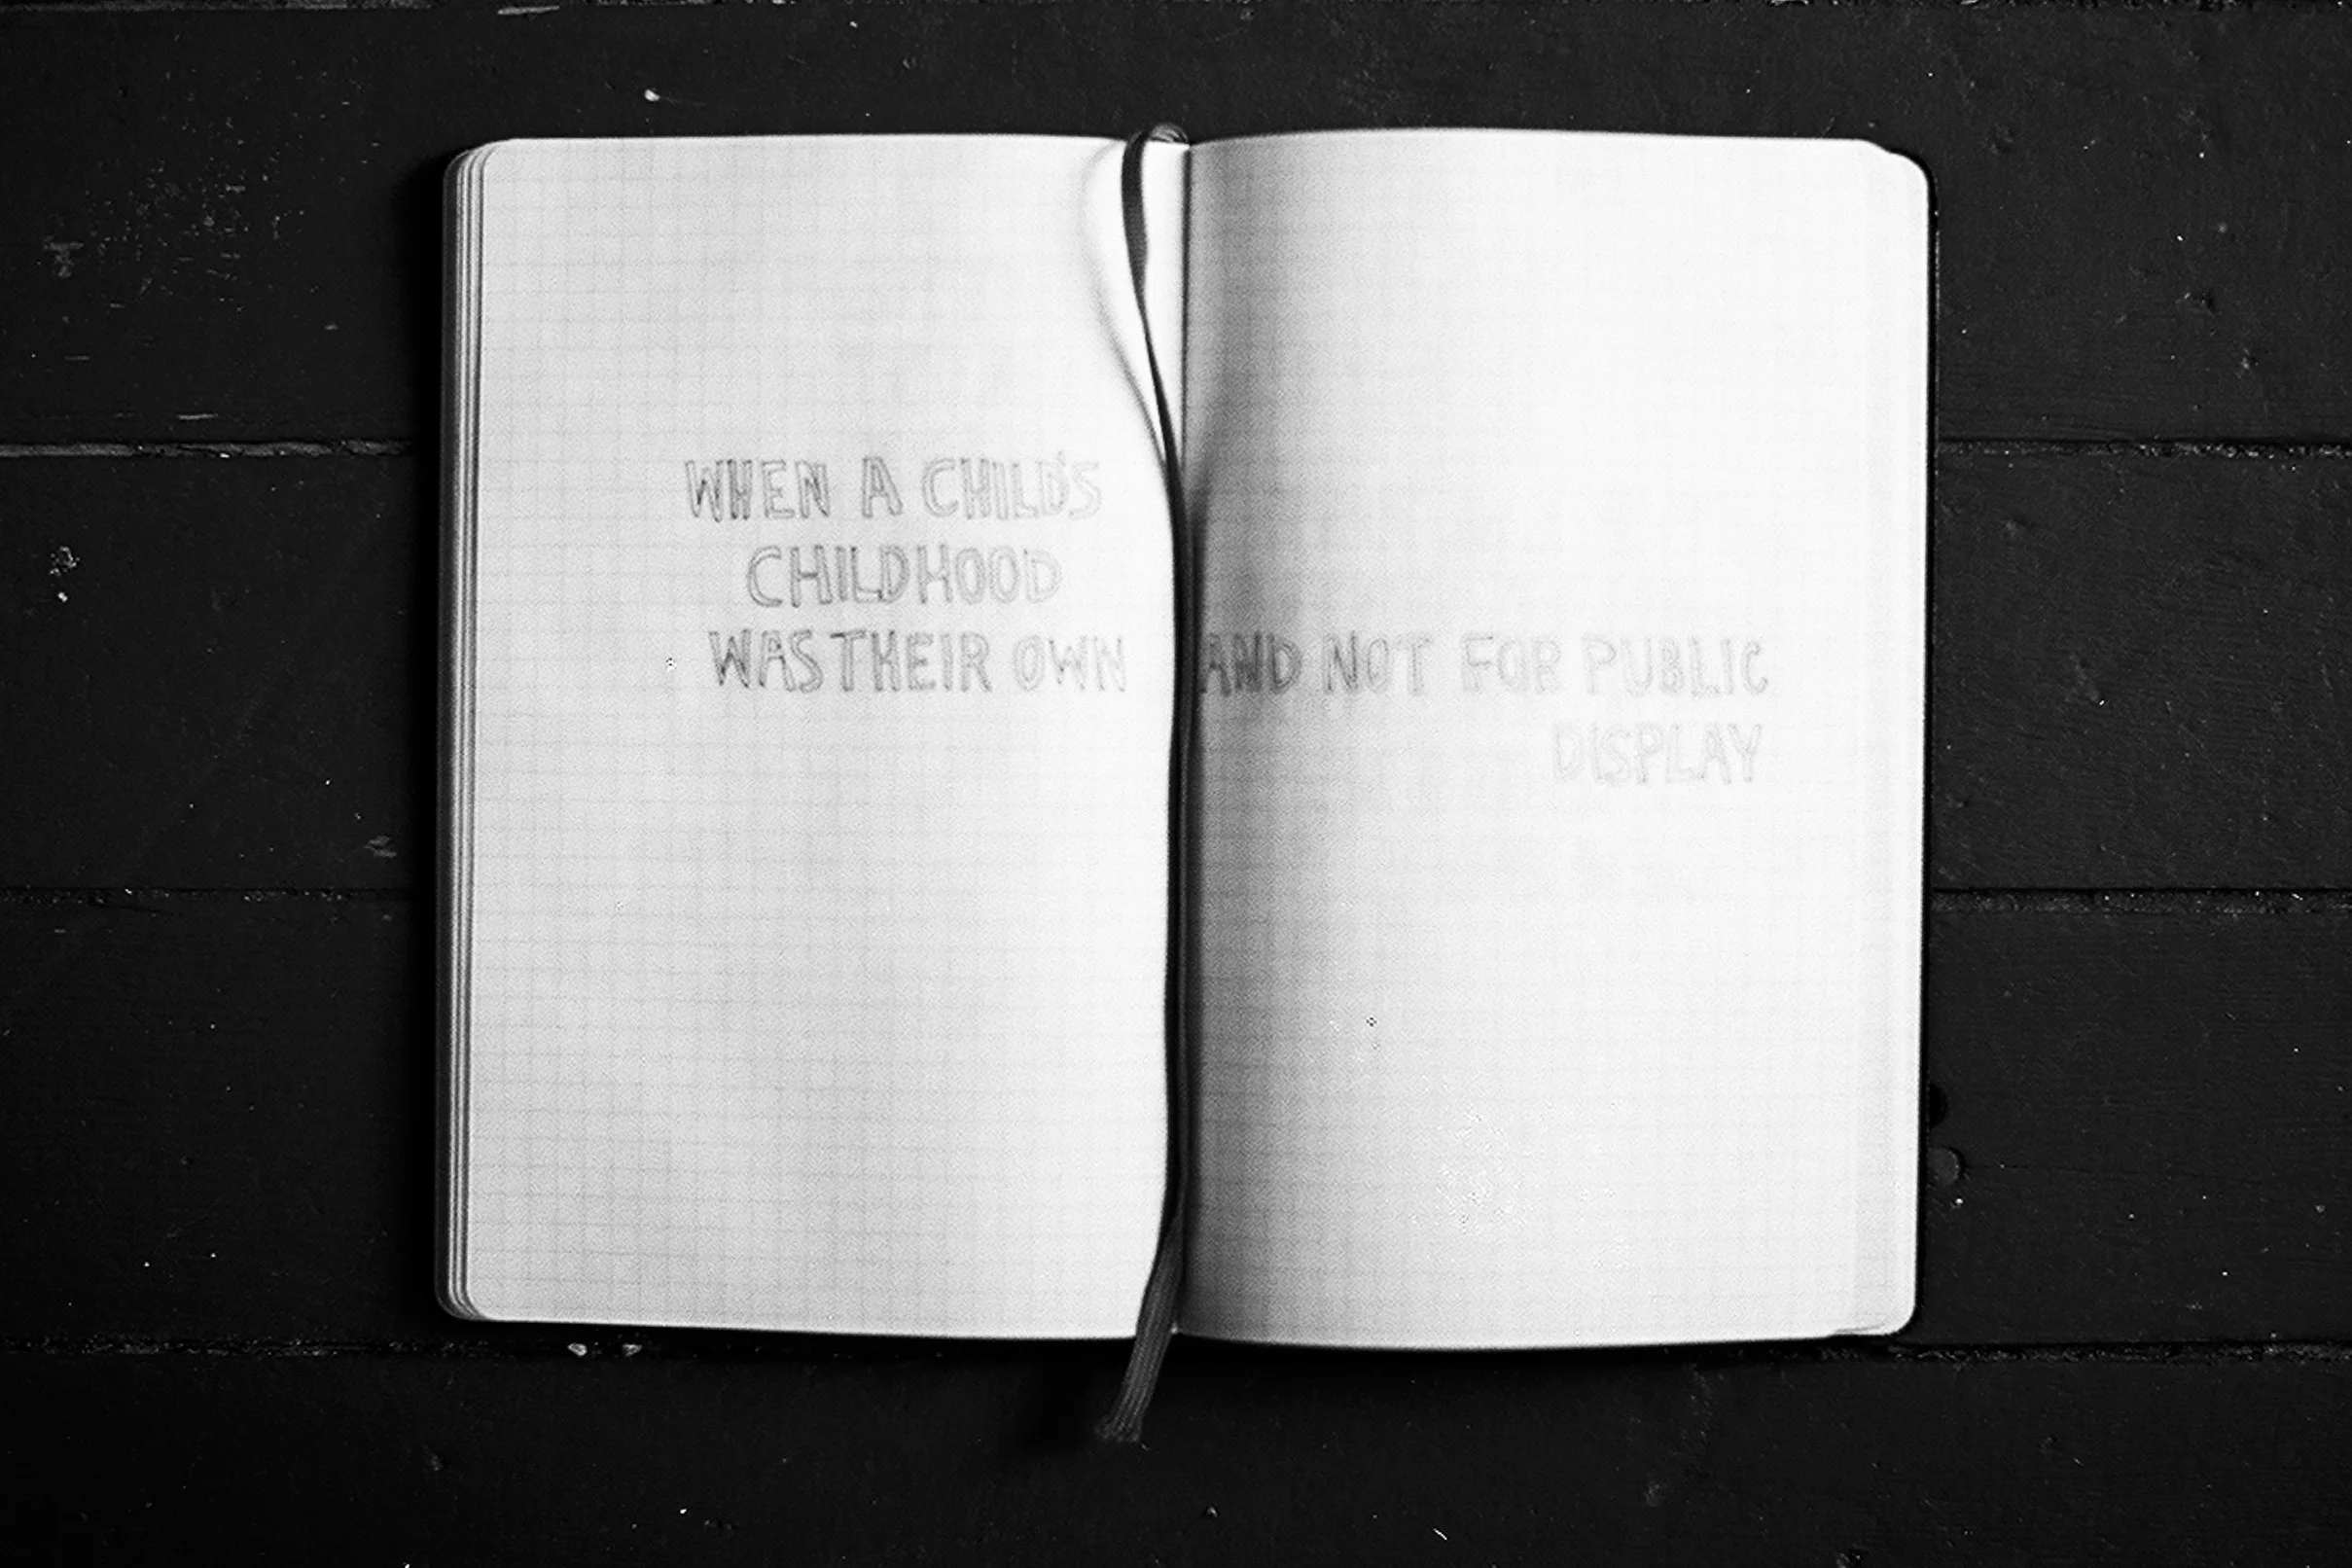 WHEN A CHILD'S
CHILDHOOD
WAS THEIR OWN AND NOT FOR PUBLIC
DISPLAY